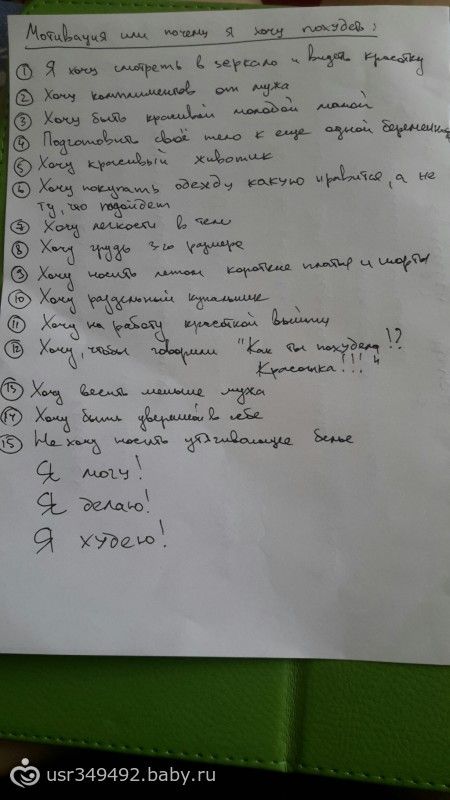 Мотивация или почему я хочу похудеть:
1 Я хочу смотреть в зеркало и видеть красотку
2 Хочу комплиментов от мужа
3 Хочу быть красивой молодой мамой
4 Подготовить своё тело к еще одной беременности
5 Хочу красивый животик
6 Хочу покупать одежду какую нравится, а не
ту, что подойдет
7 Хочу легкости в теле
8 Хочу грудь 3го размера
9 Хочу носить летом короткие платья и шорты
10 Хочу раздельный купальник
11 Хочу на работу красоткой выйти
12 Хочу, чтобы говорили "Как ты похудела!?
Красотка!!!"
13 Хочу весить меньше мужа
14 Хочу быть уверенной в себе
15 Не хочу носить утягивающее белье
Я могу!
Я делаю!
Я худею!
usr349492.baby.ru